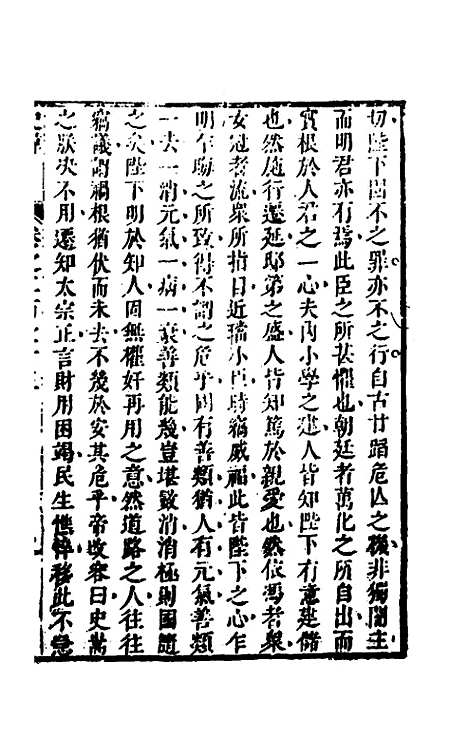 切陛下固不之罪亦不之行自古甘蹈危亡之機非獨闇主
而明君亦有焉此臣之所甚懼也朝廷者萬化之所自出而
實根於人君之一心夫內小學之建人皆知陛下有意建儲
也然施行遷延邸第之盛人皆知篤於親愛也然依馮者衆
女冠者流衆所指目近璫小臣時竊威福此皆陛下之心乍
明乍晦之所致得不謂之危乎國有善類猶人有元氣善類
一去一消元氣一病一衰善類能幾豈堪數消消極則國隨
之矣陛下明於知人固無權奸再用之意然道路之人往往
竊議謂禍根猶伏而未去不幾於安其危乎帝改容曰史嵩
之朕決不用還知太宗正言財用困竭民生憔悴移此不急